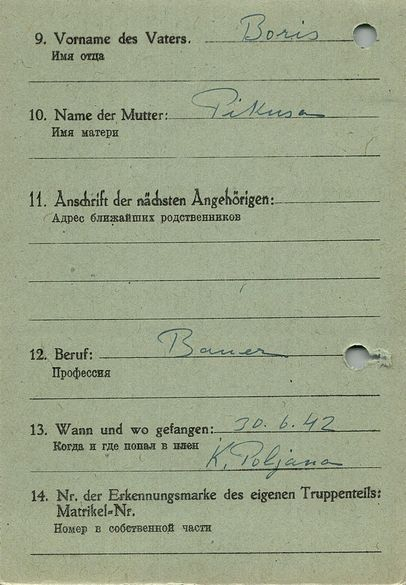 9. Vorname des Vaters. Boris
Имя отца
10. Name der Mutter: Pikusa
Имя матери
11. Anschrift der nächsten Angehörigen:
Адрес ближайших родственников
12. Beruf: Bauer
Профессия
13. Wann und wo gefangen: 30.6.42
Когда и где попал в плен
K. Poljana
14. Nr. der Erkennungsmarke des eigenen Truppenteils:
Matrikel-Nr.
Номер в собственной части